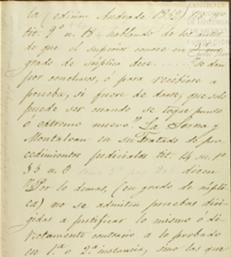 la (edicion Andrade 1842)
tit. 9º n. 13, hablando de los autos
de que el superior conoce en
grado de súplica dice "Se dan
por conclusos, ó para recibirse a
prueba, si fuere de darse, que solo
puede ser cuando se trajese
ó estremo nuevo" La Serna y
Montalvan en su Tratado de pro
cedimientos judiciales tit. 4 n. 1º
33 n. 3 dicen
"Por lo demas, (en grado de súpli
ca) no se admiten pruebas diri
gidas a justificar lo mismo ó di
rectamente contrario a lo probado
en 1ª ó 2ª instancia, sino las que